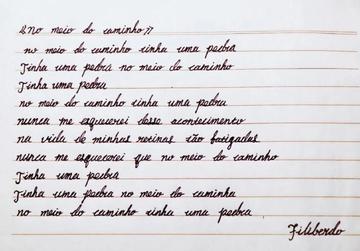 "No meio do caminho"
no meio do caminho tinha uma pedra
Tinha uma pedra no meio do caminho
Tinha uma pedra
no meio do caminho tinha uma pedra
nunca me esquecerei desse acontecimento
na vida de minhas retinas tão fatigadas
nunca me esquecerei que no meio do caminho
Tinha uma pedra
Tinha uma pedra no meio do caminho
no meio do caminho tinha uma pedra
Filiberdo